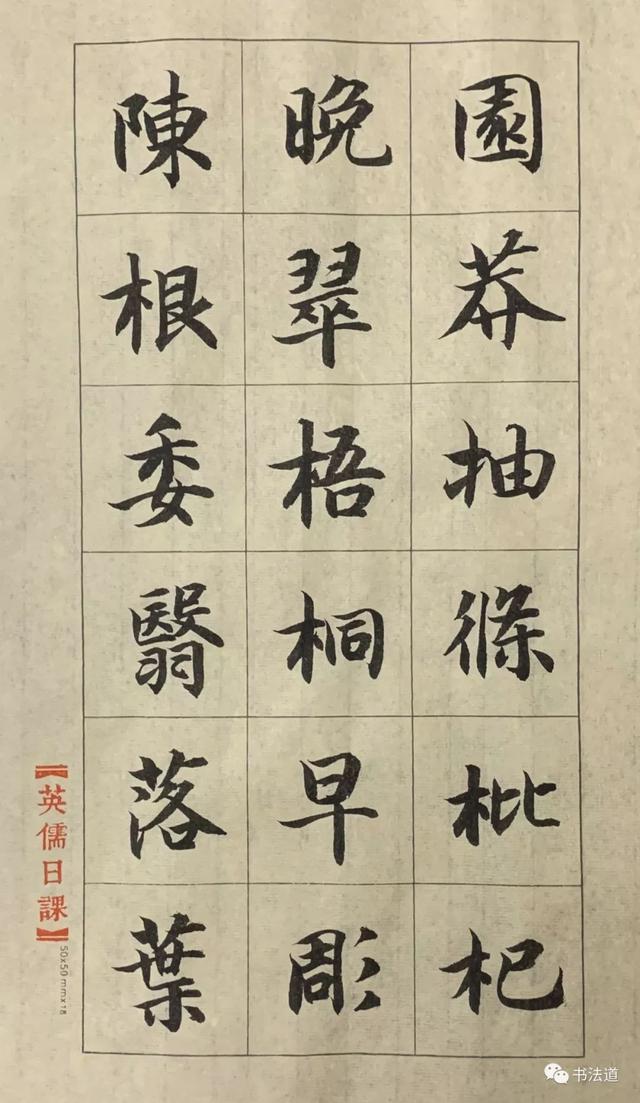 園莽抽條枇杷
晚翠梧桐早彫
陳根委翳落葉
【英儒日課】
50x50mmx18
书法道